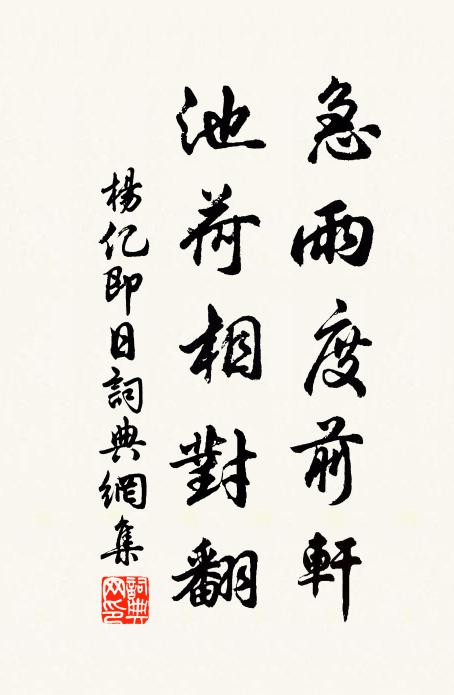 急雨度前軒
池荷相對翻
楊亿即日詞典網集
詞典網印